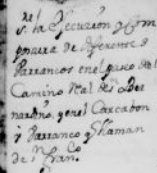 s. la Execuzion y Com
posura de diferentes
Barrancos en el paseo del
Camino Real de Sn Ber
nardino, y en el Carcabon
y Barranco q llaman
de Sn Franco